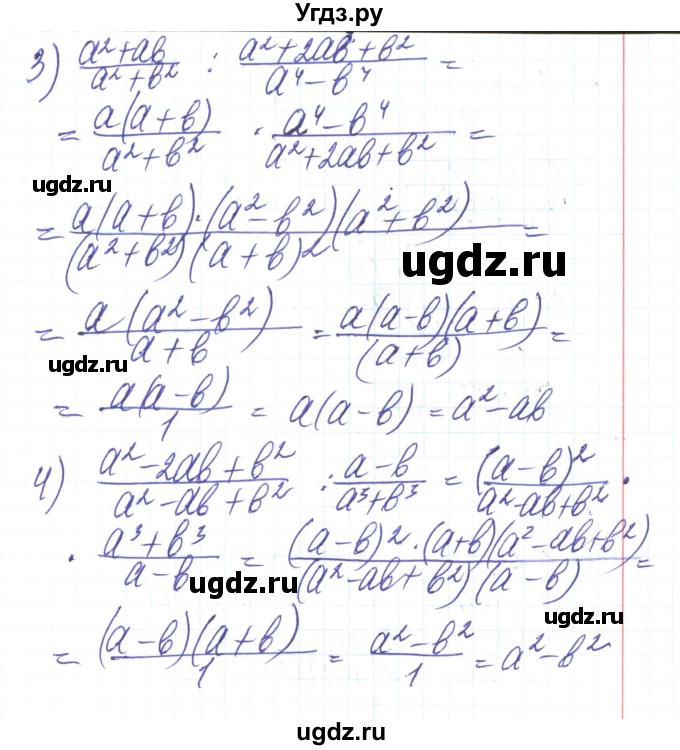 Угдз.ру
3) (a²+ab)/(a²+b²) : (a²+2ab+b²)/(a⁴-b⁴) =
= a(a+b)/(a²+b²) · (a⁴-b⁴)/(a²+2ab+b²) =
ugdz.ru
ugdz.ru
= a(a+b)·(a²-b²)(a²+b²)/((a²+b²)(a+b)²) =
ugdz.ru
= a(a²-b²)/(a+b) = a(a-b)(a+b)/(a+b) =
ugdz.ru
ugdz.ru
= a(a-b)/1 = a(a-b) = a²-ab
4) (a²-2ab+b²)/(a²-ab+b²) : (a-b)/(a³+b³) = (a-b)²/(a²-ab+b²) ·
· (a³+b³)/(a-b) = (a-b)²·(a+b)(a²-ab+b²)/((a²-ab+b²)(a-b)) =
ugdz.ru
= (a-b)(a+b)/1 = (a²-b²)/1 = a²-b²
ugdz.ru
ugdz.ru